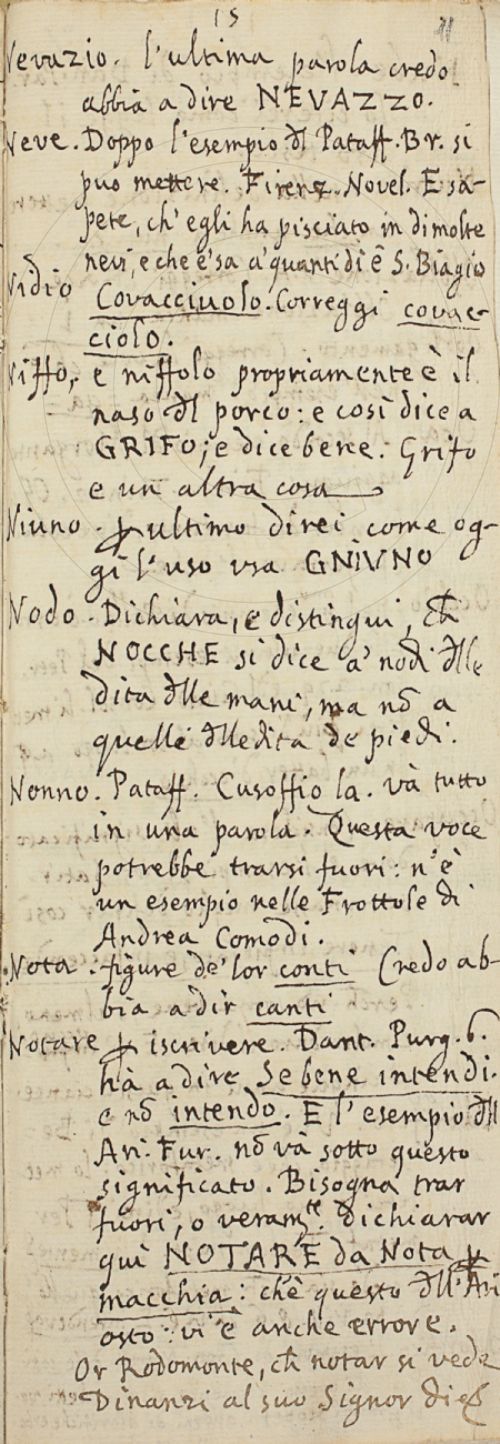 15
Nevazio. l'ultima parola credo
abbia a dire NEVAZZO.
Neve. Doppo l'esempio dl Pataff. Br. si
può mettere. Firenz. Novel. E sa-
pete, ch'egli ha pisciato in dimolte
nevi, e che e' sa a' quanti dì è S. Biagio
Nidio Covacciuolo. Correggi covac-
ciolo.
Niffo, e niffolo propriamente è il
naso dl porco: e così dice a
GRIFO; e dice bene. Grifo
e un altra cosa
Niuno. p ultimo direi come og-
gi l'uso usa GNIUNO
Nodo. Dichiara, e distingui, ch
NOCCHE si dice a' nodi dlle
dita dlle mani, ma nō a
quelle dlledita de piedi.
Nonno. Pataff. Cusoffiola. và tutto
in una parola. Questa voce
potrebbe trarsi fuori: n'è
un esempio nelle Frottole di
Andrea Comodi.
Nota: figure de'lor conti Credo ab-
bia a dir canti
Notare p iscrivere. Dant. Purg. 6.
hà a dire Se bene intendi.
e nō intendo. E l'esempio dll
Ari. Fur. nō và sotto questo
significato. Bisogna trar
fuori, o veramte. dichiarar
qui NOTARE da Nota p
macchia: chè questo dll'Ari
osto: vi è anche errore.
Or Rodomonte, ch notar si vede
Dinanzi al suo Signor di